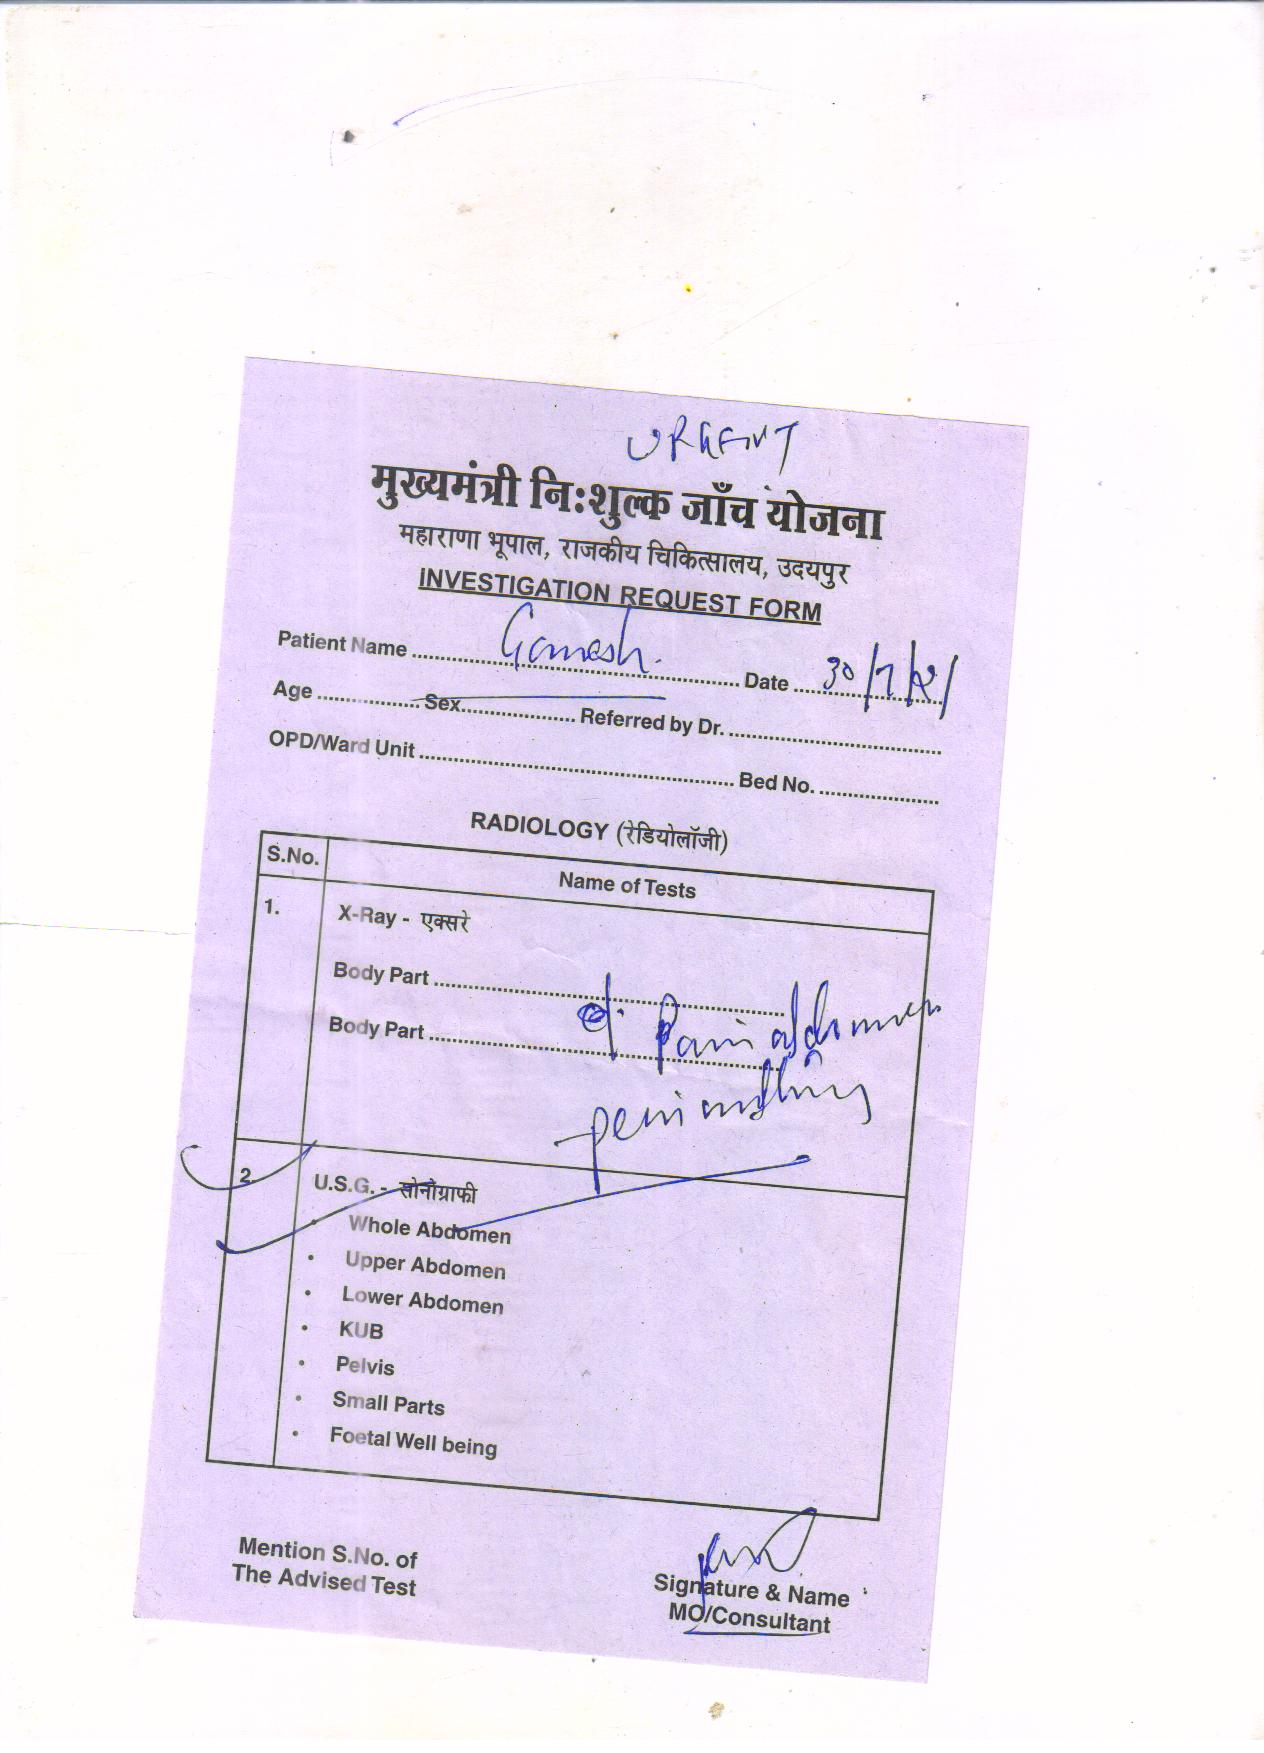 URGENT
मुख्यमंत्री नि:शुल्क जाँच योजना
महाराणा भूपाल, राजकीय चिकित्सालय, उदयपुर
INVESTIGATION REQUEST FORM
Patient Name Ganesh. Date 30/7/21
Age Sex Referred by Dr.
OPD/Ward Unit Bed No.
RADIOLOGY (रेडियोलॉजी)
S.No. Name of Tests
1. X-Ray - एक्सरे
Body Part
Body Part
Pain abdomen
2. U.S.G. - सोनोग्राफी
• Whole Abdomen
• Upper Abdomen
• Lower Abdomen
• KUB
• Pelvis
• Small Parts
• Foetal Well being
Mention S.No. of
The Advised Test
Signature & Name
MO/Consultant